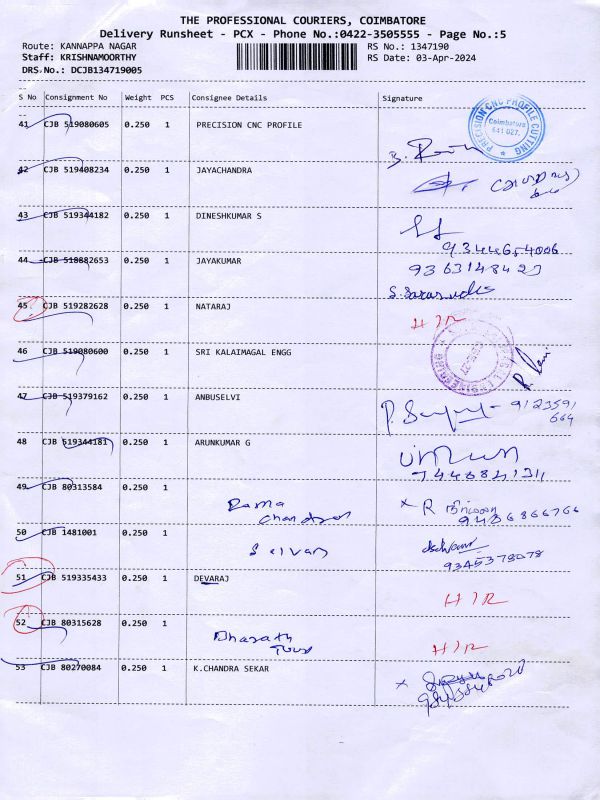 THE PROFESSIONAL COURIERS, COIMBATORE
Delivery Runsheet - PCX - Phone No.:0422-3505555 - Page No.:5
Route: KANNAPPA NAGAR RS No.: 1347190
Staff: KRISHNAMOORTHY RS Date: 03-Apr-2024
DRS No.: DCJB134719005
S No Consignment No Weight PCS Consignee Details Signature
41 CJB 519080605 0.250 1 PRECISION CNC PROFILE
PRECISION CNC PROFILE CUTTING
Coimbatore
641 027.
42 CJB 519408234 0.250 1 JAYACHANDRA
43 CJB 519344182 0.250 1 DINESHKUMAR S
9344654006
44 CJB 518882653 0.250 1 JAYAKUMAR 9363148423
45 CJB 519282628 0.250 1 NATARAJ HIR
46 CJB 519080600 0.250 1 SRI KALAIMAGAL ENGG
47 CJB 519379162 0.250 1 ANBUSELVI 9123591
664
48 CJB 519344181 0.250 1 ARUNKUMAR G
49 CJB 80313584 0.250 1 Rama x R
chandran
50 CJB 1481001 0.250 1 Selvam
9345378078
51 CJB 519335433 0.250 1 DEVARAJ HIR
52 CJB 80315628 0.250 1 Bharath HIR
53 CJB 80270084 0.250 1 K.CHANDRA SEKAR x